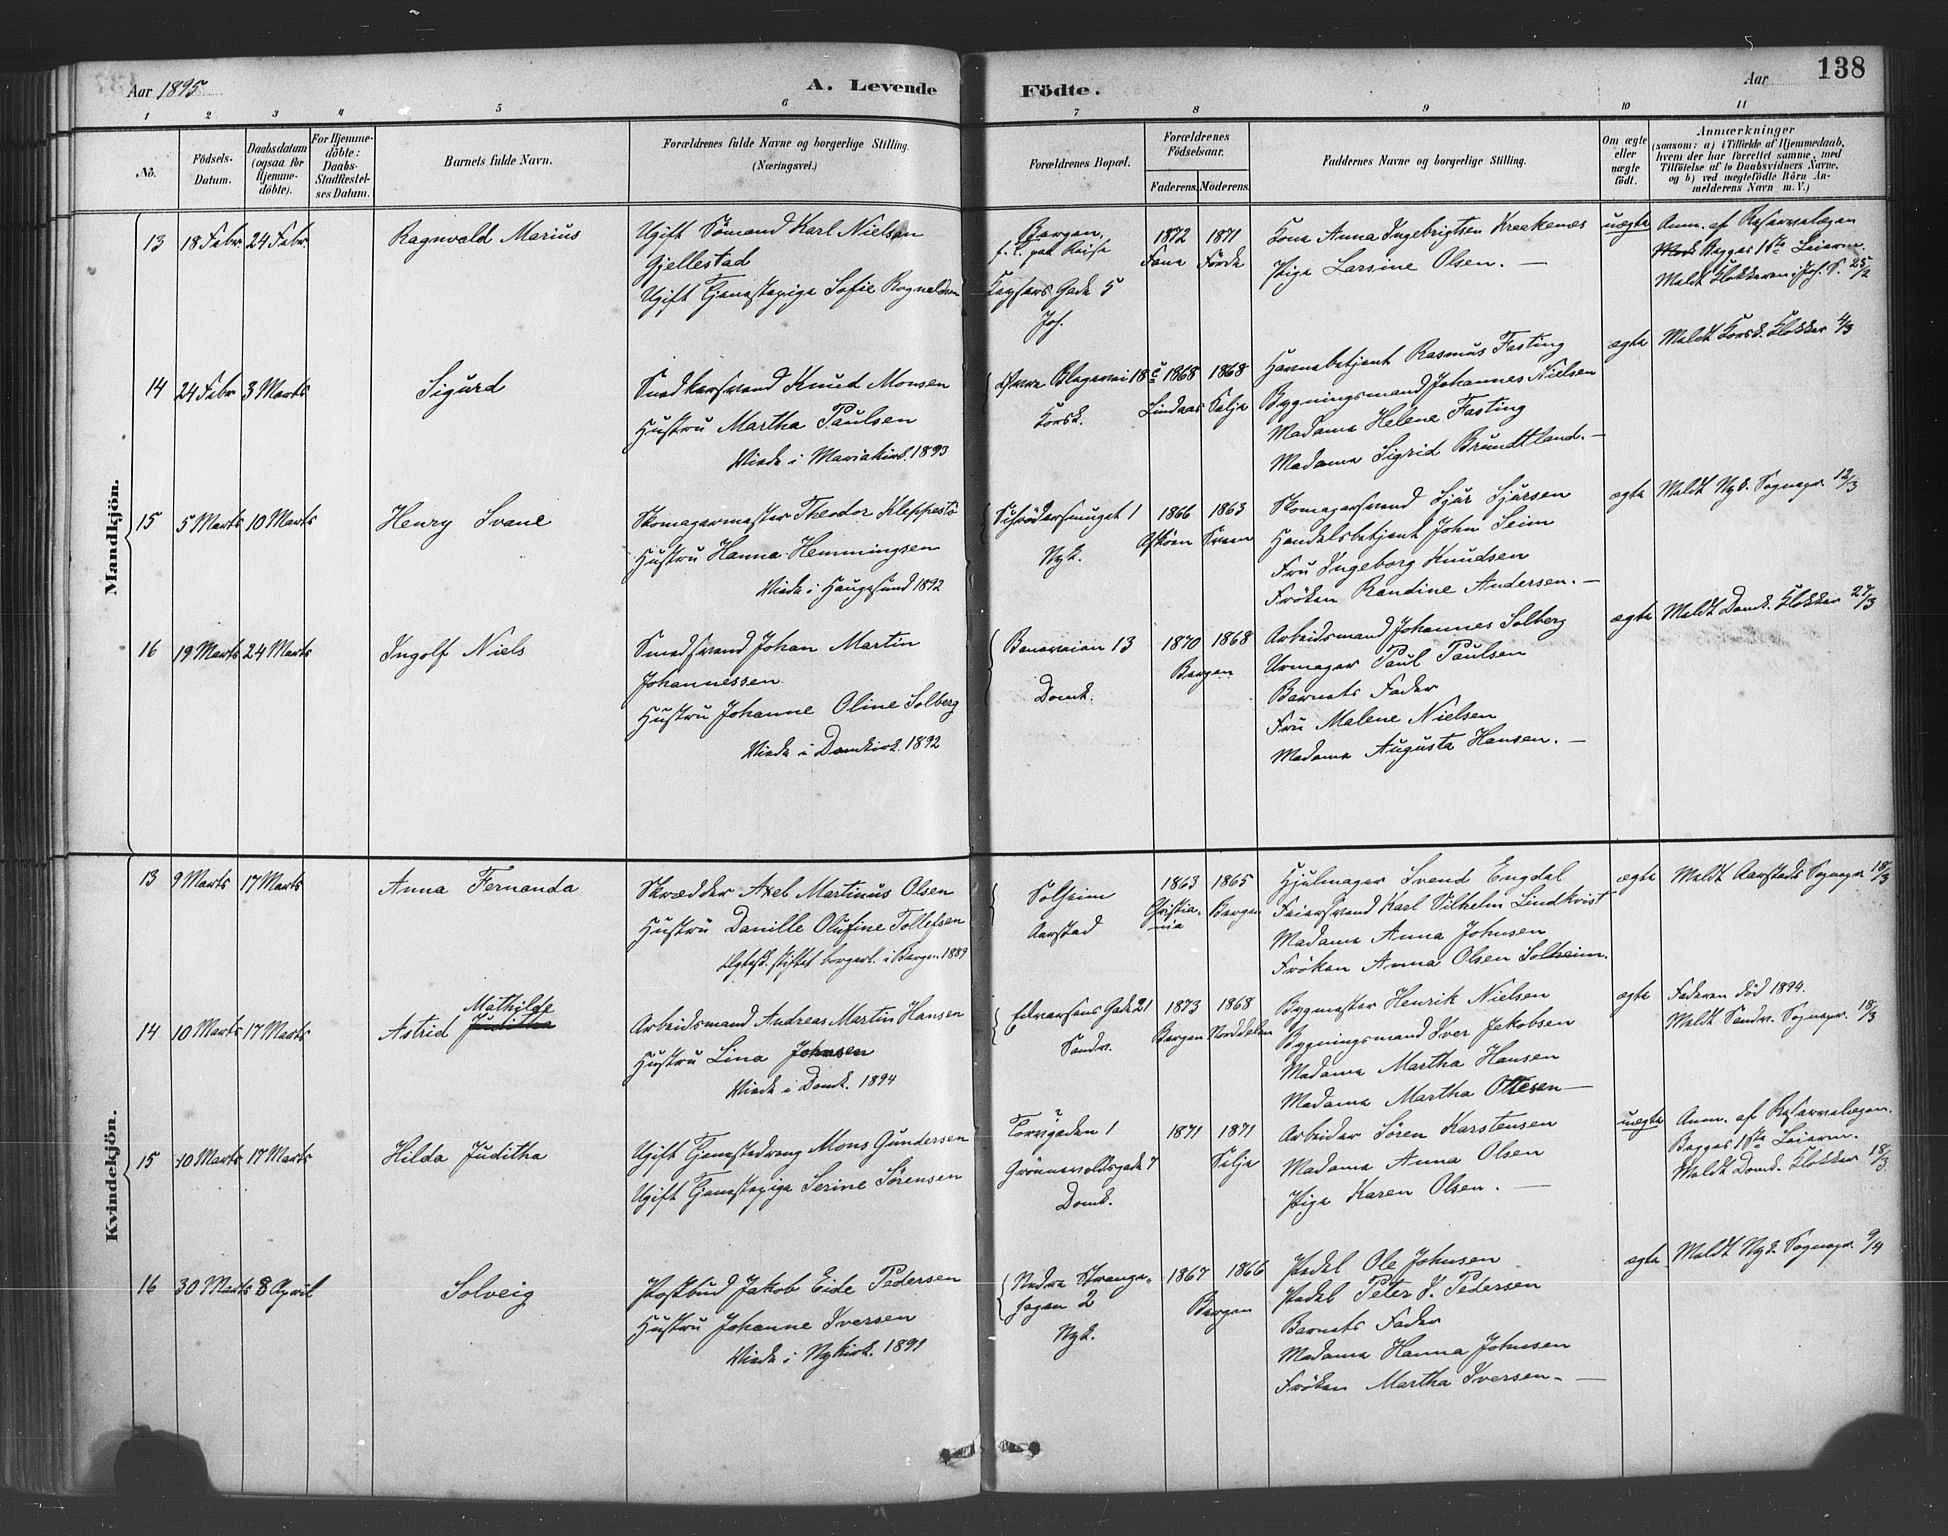 Aar 1895.
A. Levende Födte.
Aar
138
1 2 3 4 5 6 7 8 9 10 11
No.
Födsels-Datum.
Daabsdatum (ogsaa for Hjemme-döbte).
For Hjemme-döbte: Daabs-Stadfæstel-ses Datum.
Barnets fulde Navn.
Forældrenes fulde Navne og borgerlige Stilling. (Næringsvei.)
Forældrenes Bopæl.
Forældrenes Födselsaar.
Faderens. Moderens.
Faddernes Navne og borgerlige Stilling.
Om ægte eller uægte födt.
Anmærkninger
(saasom: a) i Tilfælde af Hjemmedaab, hvem der har forrettet samme, med Tilföielse af to Daabsvidners Navne, og b) ved uægtefödte Börn An-melderens Navn m. V.)
Mandkjön.
13 18 Febr 24 Febr
Ragnvald Marius
Ugift Sömand Karl Nielsen
Gjellestad
Ugift Tjenestepige Sofie Rognaldsen
Bergen,
f. t. paa Reise
Keysers Gade 5
Joh.
1872 Fana
1871 Förde
Kone Anna Ingebrigtsen Kraakenes
Pige Larsine Olsen. —
uægte
Anm. af Reservelægen
Begges 1ste Leierm.
Meldt Klokkeren i Joh. S. 25/2
14 24 Febr 3 Marts
Sigurd
Snedkersvend Knud Monsen
Hustru Martha Paulsen
Viede i Mariakirk. 1893
Övre Blegevei 18c
Korsk.
1868 Lindaas
1868 Selje
Havnebetjent Rasmus Fasting
Bygningsmand Johannes Nielsen
Madame Helene Fasting
Madame Sigrid Brundtland. —
ægte
Meldt Korsk. Klokker 4/3
15 5 Marts 10 Marts
Henry Svane
Skomagermester Theodor Kleppestö
Hustru Hanna Hemmingsen
Viede i Haugesund 1892
Schrödersmuget 1
Nyk.
1866 Asköen
1863 Sveen
Skomagersvend Sjur Sjursen
Handelsbetjent John Seim
Fru Ingeborg Knudsen
Fröken Randine Andersen. —
ægte
Meldt Nyk. Sognepr. 12/3
16 19 Marts 24 Marts
Ingolf Niels
Smedsvend Johan Martin
Johannessen
Hustru Johanne Oline Solberg
Viede i Domkirk. 1892
Beneveien 13
Domk.
1870 1868
Bergen
Arbeidsmand Johannes Solberg
Urmager Paul Paulsen
Barnets Fader
Fru Malene Nielsen
Madame Augusta Hansen. —
ægte
Meldt Domk. Klokker 27/3
Kvindekjön.
13 9 Marts 17 Marts
Anna Fernanda
Skrædder Axel Martinus Olsen
Hustru Danille Olufine Tollefsen
Ægtesk. stiftet borgerl. i Bergen 1889
Solheim
Aarstad
1863 Christia-nia
1865 Bergen
Hjulmager Svend Engdal
Feiersvend Karl Vilhelm Lindkvist
Madame Anna Johnsen
Fröken Anna Olsen Solheim.
ægte
Meldt Aarstads Sognepr 18/3
14 10 Marts 17 Marts
Mathilde
Astrid Juditha
Arbeidsmand Andreas Martin Hansen
Hustru Lina Johnsen
Viede i Domk. 1894
Edvardsens Gade 21
Sandv.
1873 Bergen
1868 Norddalen
Bygmester Henrik Nielsen
Bygningsmand Iver Jakobsen
Madame Martha Hansen
Madame Martha Ottesen —
ægte
Faderen död 1894.
Meldt Sandv. Sognepr. 18/3
15 10 Marts 17 Marts
Hilda Juditha
Ugift Tjenestedreng Mons Gundersen
Ugift Tjenestepige Serine Sörensen
Torvgaden 1
Grönnevoldsgade 7
Domk.
1871
1871 Selje
Arbeider Sören Karstensen
Madame Anna Olsen
Pige Karen Olsen. —
uægte
Anm. af Reservelægen.
Begges 1ste Leierm.
Meldt Domk. Klokker 18/3
16 30 Marts 8 April
Solveig
Postbud Jakob Eide Pedersen
Hustru Johanne Iversen
Viede i Nykirk. 1891
Nedre Strange-
hagen 2
Nyk.
1867 1866
Bergen
Pedel Ole Johnsen
Pedel Peter I. Pedersen
Barnets Fader
Madame Hanna Johnsen
Fröken Martha Iversen. —
ægte
Meldt Nyk. Sognepr. 9/4